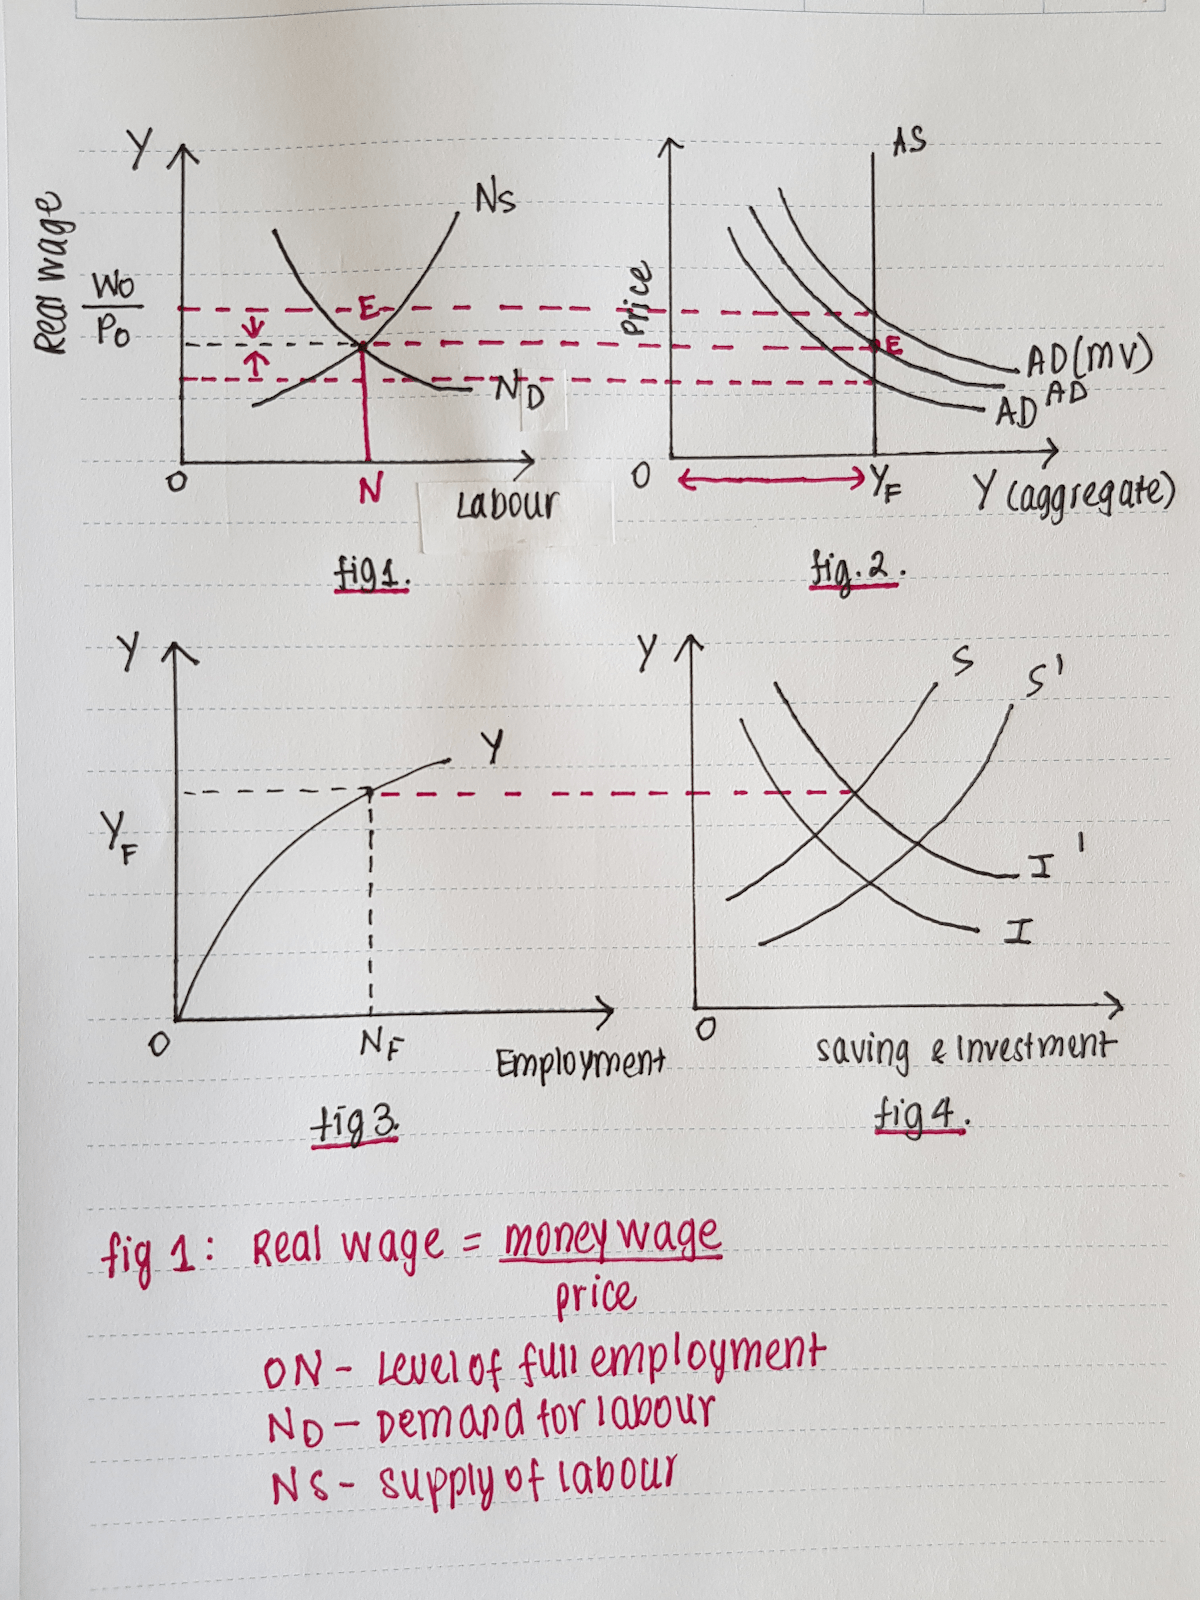 Y
Real wage
Wo
Po
Ns
E
ND
O
N
Labour
fig 1.
AS
Price
E
AD(MV)
AD
AD
O
YF
Y (aggregate)
fig. 2.
Y
Y
YF
O
NF
Employment
fig 3.
Y
S
S'
I'
I
O
saving & Investment
fig 4.
fig 1: Real wage = money wage
price
ON - Level of full employment
ND - Demand for labour
NS - supply of labour